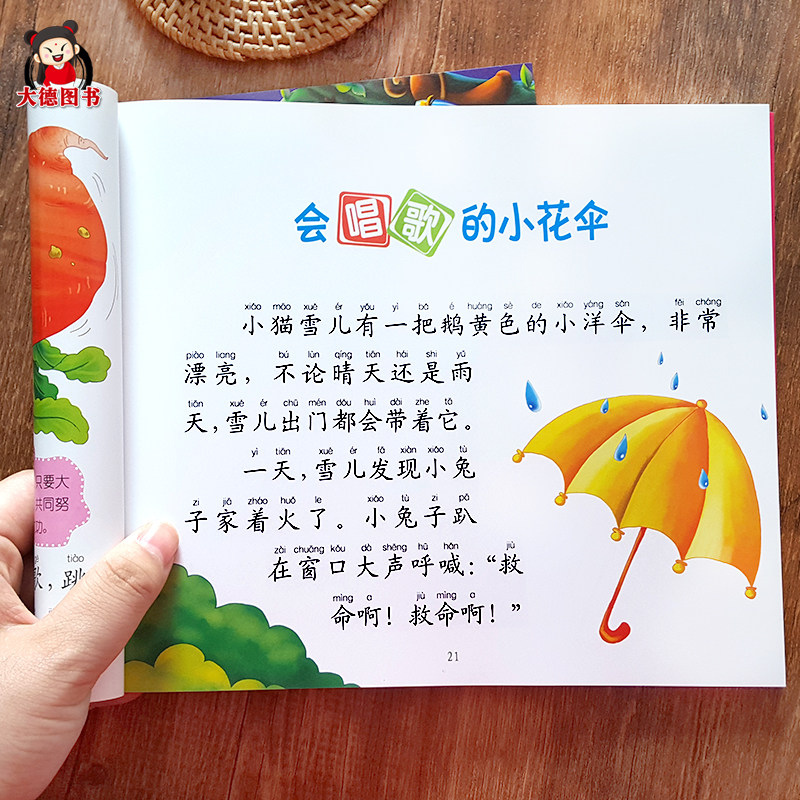 大德图书
会唱歌的小花伞
xiǎo māo xuě ér yǒu yì bǎ é huáng sè de xiǎo yáng sǎn fēi cháng
小猫雪儿有一把鹅黄色的小洋伞，非常
piào liang bú lùn qíng tiān hái shi yǔ
漂亮，不论晴天还是雨
tiān xuě ér chū mén dōu huì dài zhe tā
天，雪儿出门都会带着它。
yì tiān xuě ér fā xiàn xiǎo tù
一天，雪儿发现小兔
zi jiā zháo huǒ le xiǎo tù zi pā
子家着火了。小兔子趴
zài chuāng kǒu dà shēng hū hǎn jiù
在窗口大声呼喊：“救
mìng a jiù mìng a
命啊！救命啊！”
21
只要大
共同努
功。
tiào
歌，跳